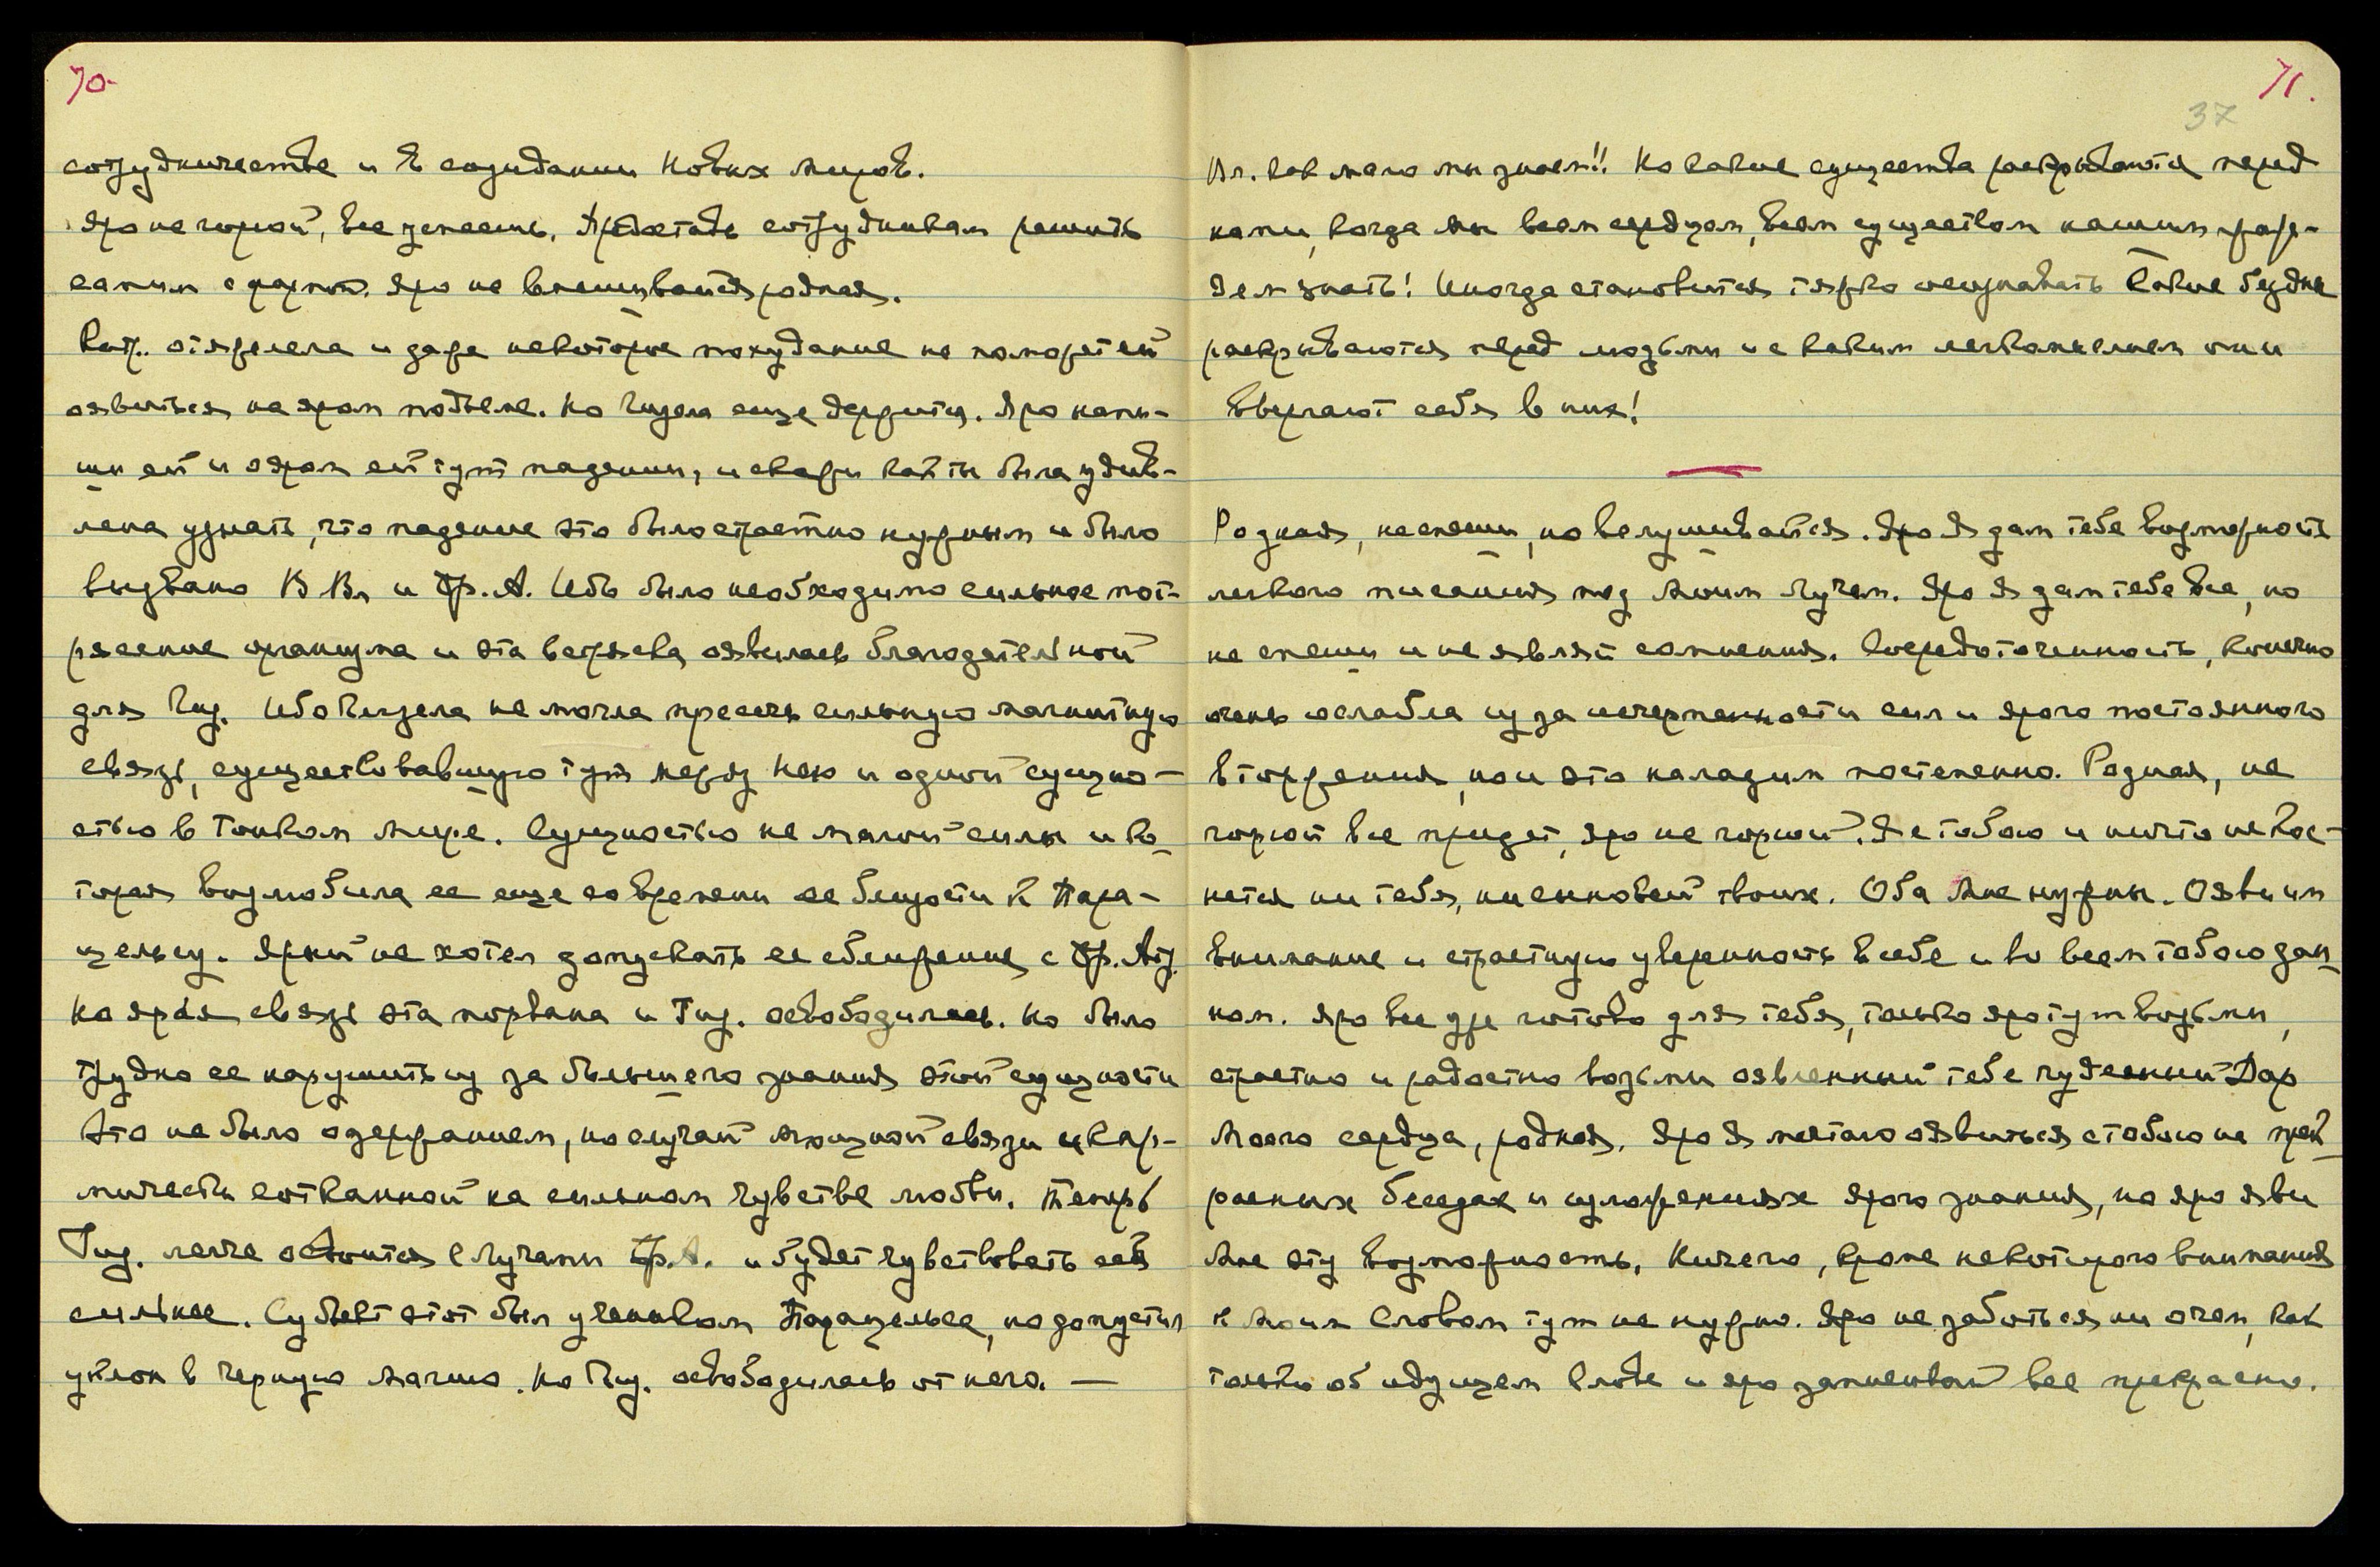 70-
сотрудничестве и в созидании Новых Миров.
Яро не горюй, все успеешь. Предоставь сотрудникам решить
самим с фермой. Яро не вмешивайся родная.
Кат. отяжелела и даже некоторое похудание не поможет ей
оявиться на яром подъеме. Но Гизела еще держится. Яро напи-
ши ей и о яром ей тут падении, и скажи как ты была удив-
лена узнать, что падение это было страстно нужным и было
вызвано В Вл и Фр. А. Ибо было необходимо сильное пот-
рясение организма и эта встряска, оявилась благодательной
для Гиз. Ибо Гизела не могла пресечь сильную магнитную
связь, существовавшую тут между Нею и одной сущно-
стью в Тонком Мире. Сущностью не малой силы и ко-
торая возлюбила ее еще со времени ее близости к Пара-
цельсу. Ярый не хотел допускать ее сближение с Фр. Ат.
Но ярая связь эта порвана и Гиз. освободилась. Но было
трудно ее нарушить из за большего знания этой сущности
Это не было одержанием, но случай мощной связи и кар-
мичести сотканной на сильном чувстве любви. Теперь
Гиз. легче освоится с Лучами Фр. А. и будет чувствовать себя
сильнее. Субъект этот был учеником Парацельса, но допустил
уклон в Черную Магию. Но Гиз. освободилась от него. —
71.
37
Вл. Как мало мы знаем!! Но какие существа раскрываются перед
нами, когда мы всем сердцем, всем существом нашим
знать! Иногда становится тяжко осознавать какие бездны
раскрываются перед людьми и с каким легкомыслием они
ввергают себя в них!
Родная, не спеши, но вслушивайся. Яро Я дам тебе возможность
легкого писания под Моим Лучем. Яро Я дам тебе все, но
не спеши и не являй сомнения. Сосредоточенность, конечно
очень ослабла из за исчерпанности сил и ярого постоянного
вторжения, но и это наладим постепенно. Родная, не
горюй все придет, яро не горюй. Я с тобою и ничто не кос-
нется ни тебя, ни сыновей твоих. Оба Мне нужны. Ояви им
внимание и страстную уверенность в себе и во всем тобою дан-
ном. Яро все уже готово для тебя, только яро тут возьми,
страстно и радостно возьми оявленный тебе чудесный Дар
Моего сердца, родная. Яро Я мечтаю оявиться с тобою на прек-
расных беседах и изложениях ярого знания, но яро яви
Мне эту возможность. Ничего, кроме некоторого внимания
к Моим Словам тут не нужно. Яро не заботься ни о чем, как
только об идущем Слове и яро записывай все прекрасно.